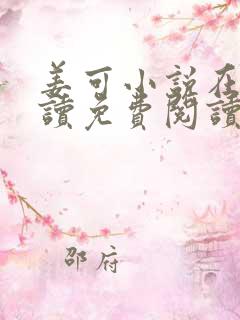 姜可小說在
讀免費閱讀
邵府